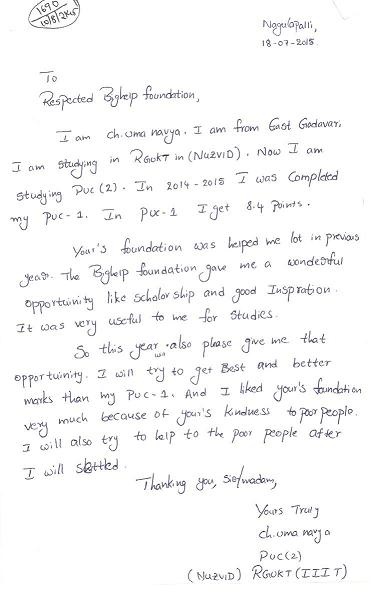 1690
10/8/2k15
Nagulapalli,
18-07-2015
To
Respected Bighelp foundation,
I am ch.uma navya. I am from East Godavari
I am studying in RGUKT in (NUZVID). Now I am
studying PUC(2). In 2014-2015 I was completed
my PUC-1. In PUC-1 I get 8.4 Points.
Your's foundation was helped me lot in previous
year. The Bighelp foundation gave me a wonderful
opportuinity like scholorship and good Inspration.
It was very useful to me for studies.
So this year also please give me that
opportuinity. I will try to get Best and better
marks than my PUC-1. And I liked your's foundation
very much because of your's kindness to poor people.
I will also try to help to the poor people after
I will settled.
Thanking you, Sir/madam,
Yours Truly
ch.uma navya
PUC(2)
(NUZVID) RGUKT (IIIT)